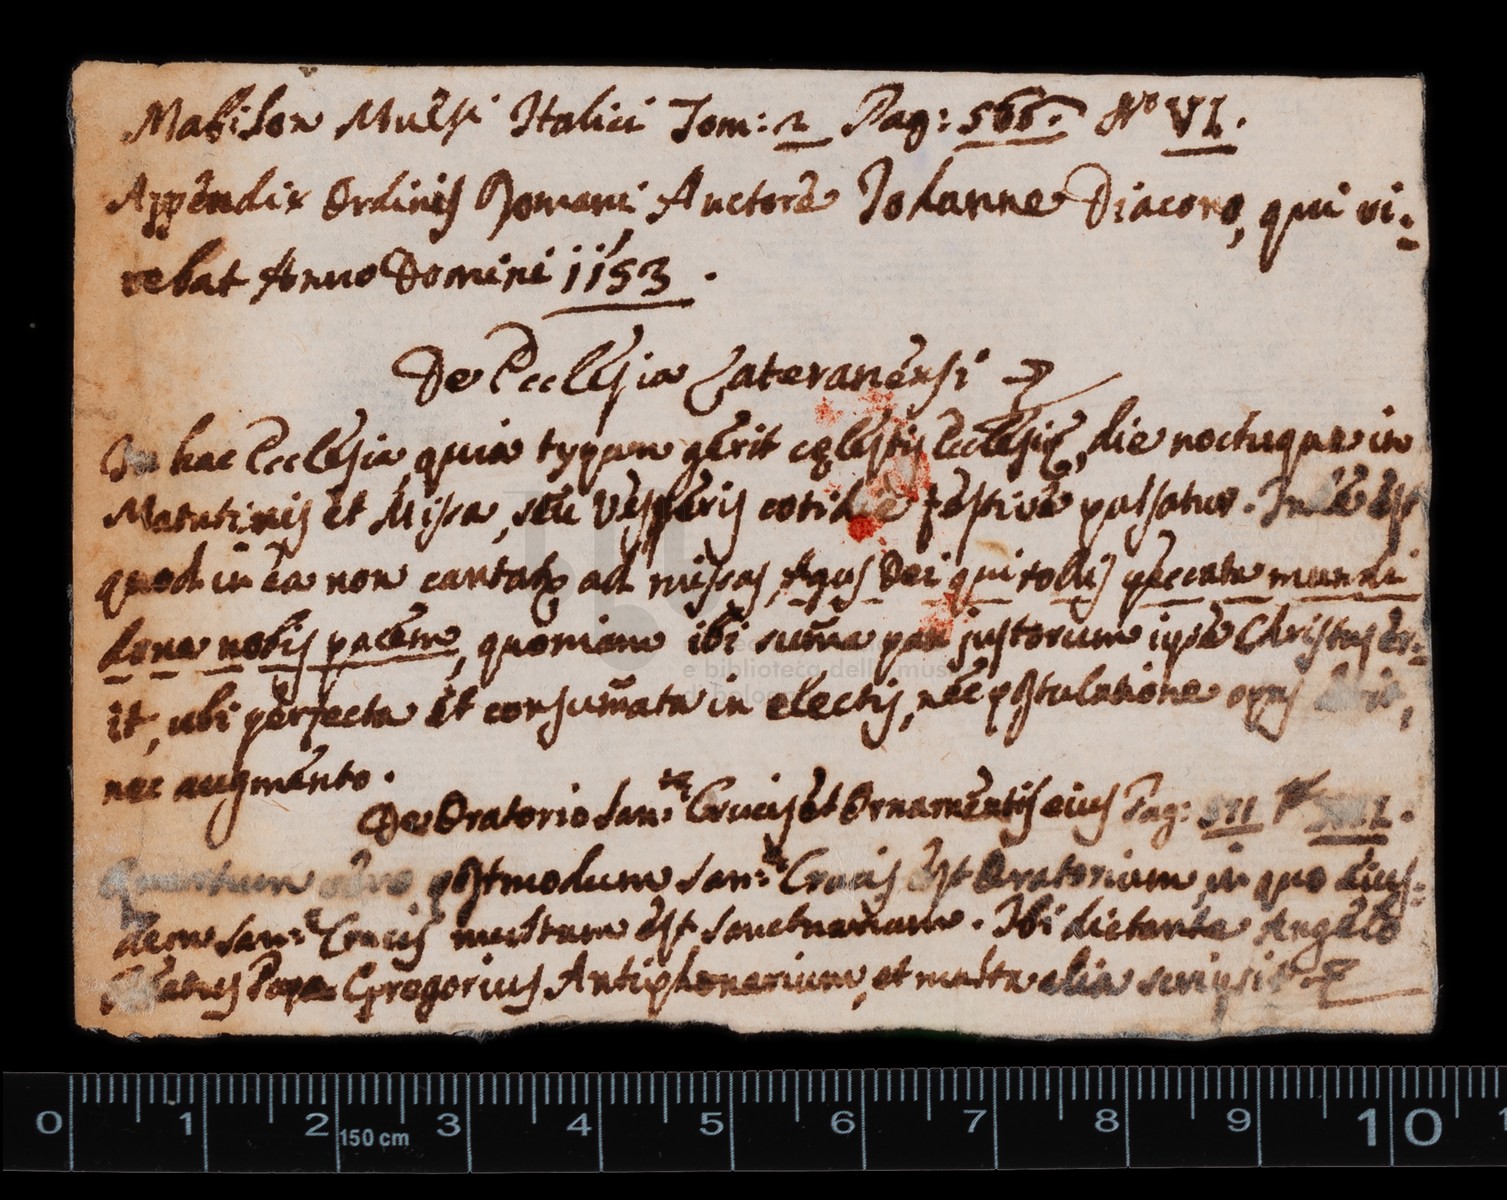 Mabilon Musei Italici Tom: 2 Pag: 566. No VI.
Appendix Ordinis Romani Auctore Johanne Diacono, qui vi:
vebat Anno Domini 1153.
De Ecclesia Lateranensi
In hac Ecclesia, quia typum gerit cęlestis Ecclesię, die noctuque in
Matutinis et Missa, seu Vesperis cotidie festive pulsatur. Inde est
quod in ea non cantatr ad missas, Agus Dei qui tollis peccata mundi
dona nobis pacem, quoniam ibi suma pax justorum ipse Christus er:
it, ubi perfecta et consumata in electis, nec postulatione opus erit,
nec augmento.
De Oratorio San:tæ Crucis et Ornamentis eius Pag: 571
postmodum San:tæ Crucis est Oratorium in quo eius:
dem San:æ Crucis multum est sanctuarium. Ibi dictante Angelo
Beatus Papa Gregorius Antiphonarium, et multa alia scripsit
0 1 2 150 cm 3 4 5 6 7 8 9 10